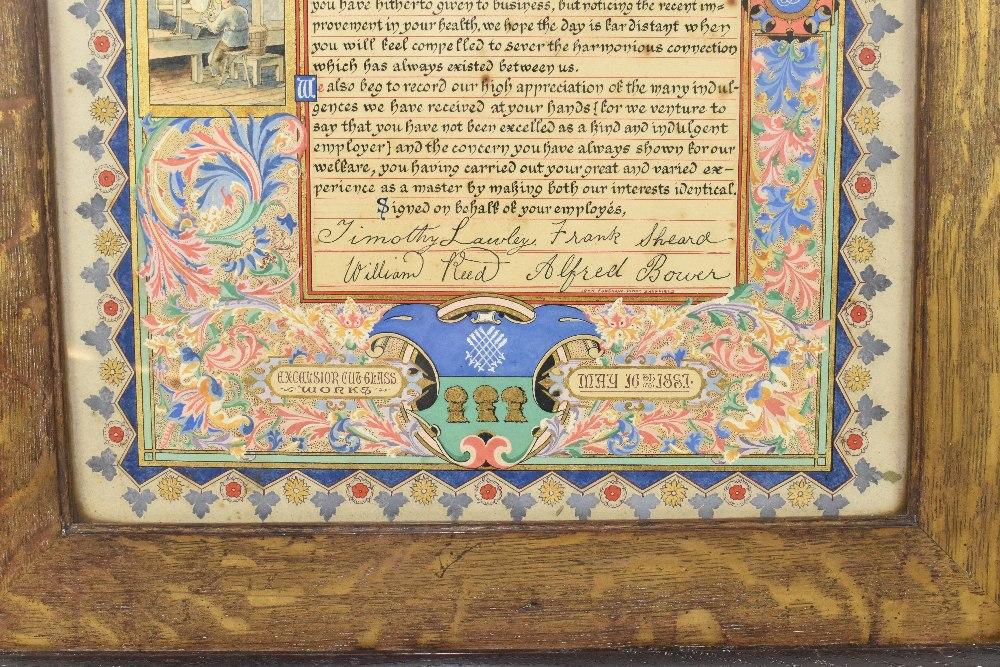 you have hitherto given to business, but noticing the recent im-
provement in your health, we hope the day is far distant when
you will feel compelled to sever the harmonious connection
which has always existed between us.
We also beg to record our high appreciation of the many indul-
gences we have received at your hands {for we venture to
say that you have not been excelled as a kind and indulgent
employer} and the concern you have always shown for our
welfare, you having carried out your great and varied ex-
perience as a master by making both our interests identical.
Signed on behalf of your employés,
Timothy Lawley. Frank Sheard
William Reed Alfred Bower
EXCELSIOR CUT GLASS
WORKS
MAY 16th 1881.